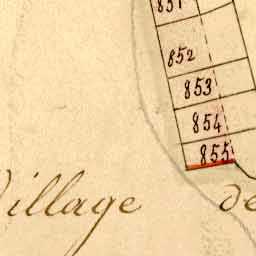 851
852
853
854
855
Village de